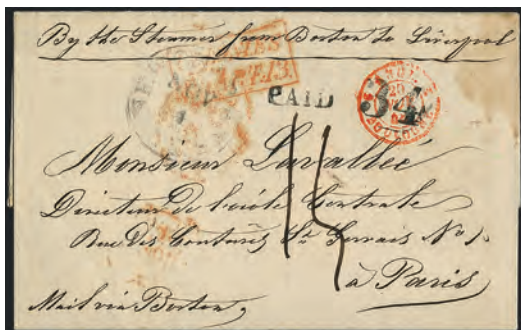 By the Steamer from Boston to Liverpool
PAID
34
15
Monsieur Lavallée
Directeur de l'école Centrale
Rue des Coutures St Gervais No 1.
à Paris
Mail via Boston,